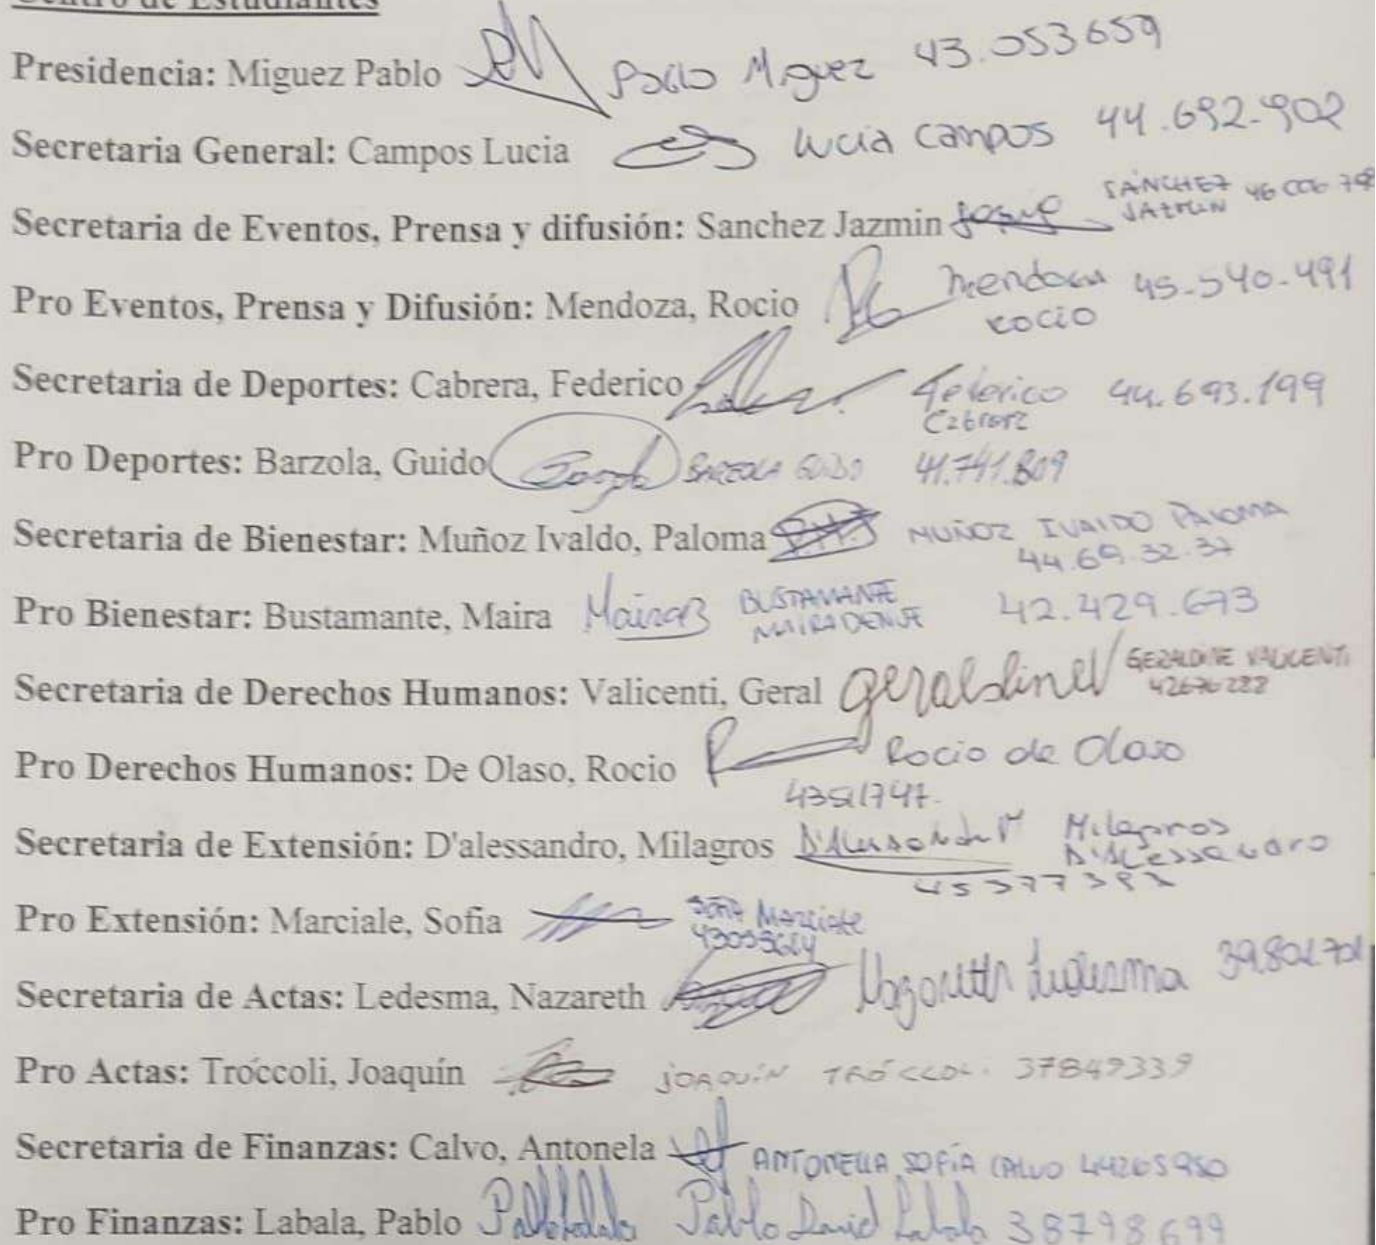 Centro de Estudiantes
Presidencia: Miguez Pablo Pablo Miguez 43.053659
Secretaria General: Campos Lucia Lucia Campos 44.692.902
Secretaria de Eventos, Prensa y difusión: Sanchez Jazmin SANCHEZ JAZMIN
Pro Eventos, Prensa y Difusión: Mendoza, Rocio Mendoza 45.540.491
rocio
Secretaria de Deportes: Cabrera, Federico Federico 44.693.199
Cabrera
Pro Deportes: Barzola, Guido BARZOLA GUIDO 41.741.809
Secretaria de Bienestar: Muñoz Ivaldo, Paloma MUÑOZ IVALDO PALOMA
44.69.32.37
Pro Bienestar: Bustamante, Maira MairaB BUSTAMANTE 42.429.673
MAIRA DENISE
Secretaria de Derechos Humanos: Valicenti, Geral geraldineV GERALDINE VALICENTI
42676222
Pro Derechos Humanos: De Olaso, Rocio Rocio de Olaso
Secretaria de Extensión: D'alessandro, Milagros Milagros
D'Alessandro
Pro Extensión: Marciale, Sofia Sofia Marciale
Secretaria de Actas: Ledesma, Nazareth Nazareth Ledesma
Pro Actas: Tróccoli, Joaquín JOAQUÍN TRÓCCOLI 37849339
Secretaria de Finanzas: Calvo, Antonela ANTONELLA SOFÍA CALVO 44265950
Pro Finanzas: Labala, Pablo Pablo Labala Pablo David Labala 38798699